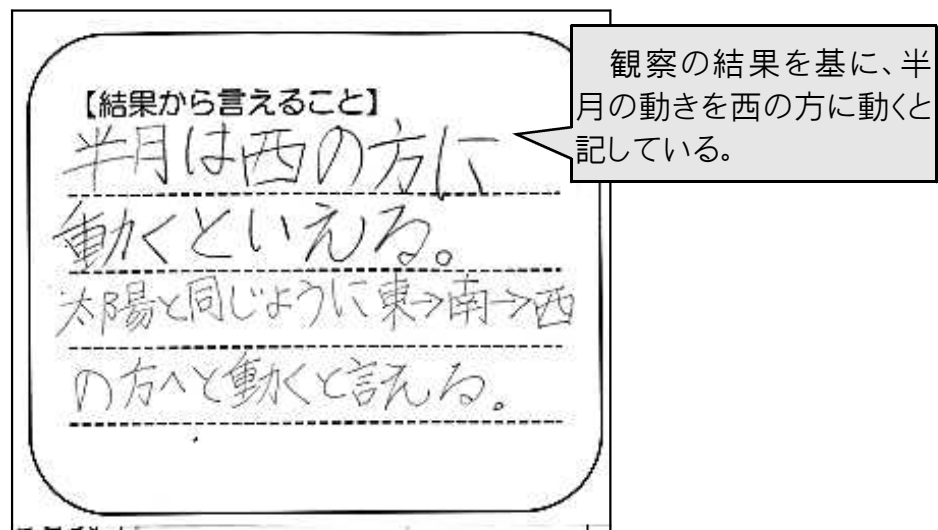 【結果から言えること】
半月は西の方に
動くといえる。
太陽と同じように東→南→西
の方へと動くと言える。
観察の結果を基に、半
月の動きを西の方に動くと
記している。